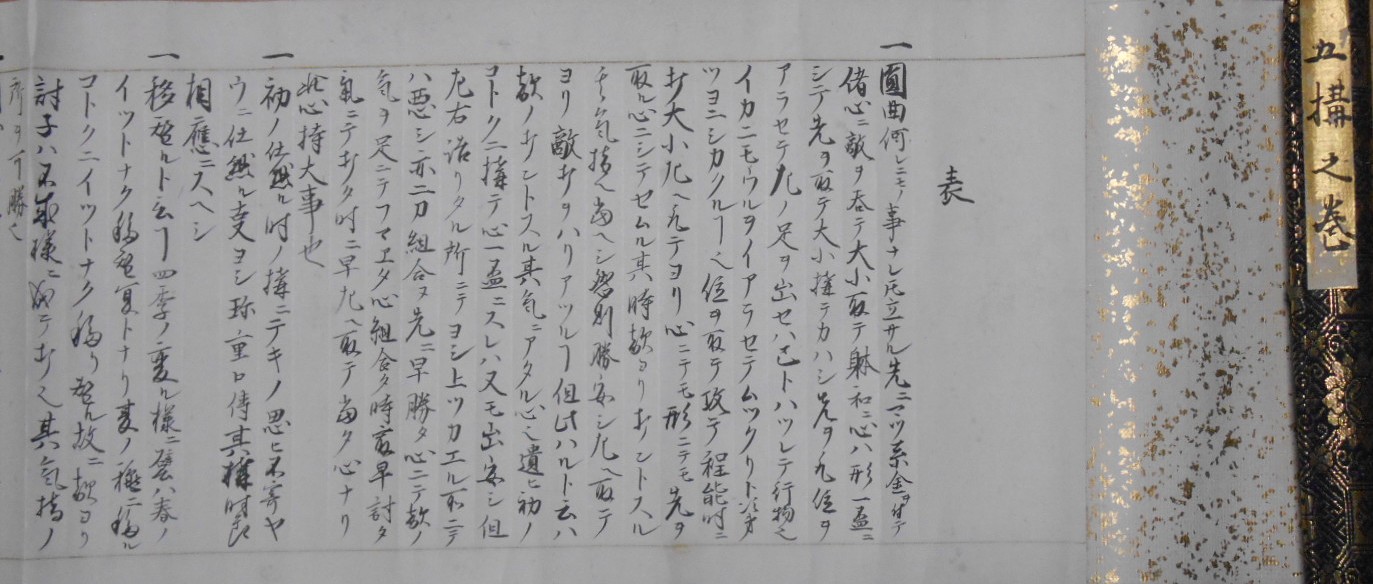 五搆之巻
表
一 圓曲何レニモノ事ナレ𪜈立サル先ニマツ系金ヲ付テ
偖心ニ敵ヲ吞テ大小取テ躰和ニ心ハ形一盃ニ
シテ先ヲ取テ大小搆テカハシ先ヲ九位ヲ
アラセテ九ノ足ヲ出セハ已トハツレテ行物也
イカニモウルヲイアラセテムツクリト
ツヨニシカクルヿ也位ヲ取テ攻テ程能時ニ
打大小九ヘ九テヨリ心ニテモ形ニテモ先ヲ
取ル心ニシテセムル其時敵ヨリ打ントスル
ヘシ惣別勝安シ九ヘ取テ
ヨリ敵打ヲハリアツルヿ但此ハルト云ハ
敵ノ打ントスル其気ニアタル心也遣ヒ初ノ
コトクニ搆テ心一盃ニスレハ又モ出安シ但
左右詰リタル所ニテヨシ上ツカエル所ニテ
ハ悪シ亦二刀組合ヌ先ニ早勝タ心ニテ敵ノ
気ヲ足ニテフマヱタ心組合タ時最早討タ
氣ニテ打タ時ニ早九ヘ取テ當タ心ナリ
此心持大事也
一 初ノ仕懸ル時ノ搆ニテキノ思ヒ不寄ヤ
ウニ仕懸ル支ヨシ珎重ロ傳其時
相應ニスヘシ
一 移登ルト云ヿ四季ノ変ル様ニ譬ハ春ノ
イツトナク移登夏トナリ夏ノ極移ル
コトクニイツトナク移リ登ル故ニ敵ヨリ
討子ハ不成様ニ成テ打也其気指ノ
所ヲ可勝也